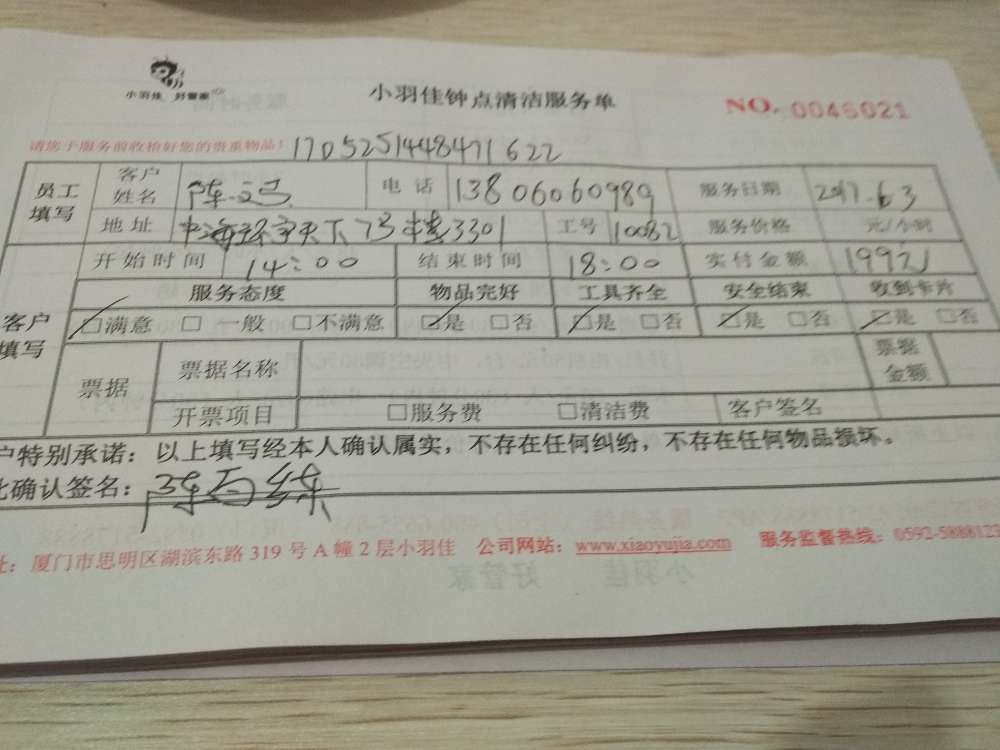 小羽佳 好管家
小羽佳钟点清洁服务单
NO. 0045021
请您于服务前收检好您的贵重物品! 1705251448471622
员工填写 客户姓名 陈 电话 13806060989 服务日期 2017.6.3
地址 中海寰宇天下 3301 工号 10082 服务价格 元/小时
客户填写 开始时间 14:00 结束时间 18:00 实付金额 199
服务态度 物品完好 工具齐全 安全结束 收到卡片
☑满意 □一般 □不满意 ☑是 □否 ☑是 □否 ☑是 □否 ☑是 □否
票据 票据名称 票据金额
开票项目 □服务费 □清洁费 客户签名
户特别承诺:以上填写经本人确认属实,不存在任何纠纷,不存在任何物品损坏。
此确认签名:陈
址:厦门市思明区湖滨东路319号A幢2层小羽佳 公司网站:www.xiaoyujia.com 服务监督热线:0592-5888812